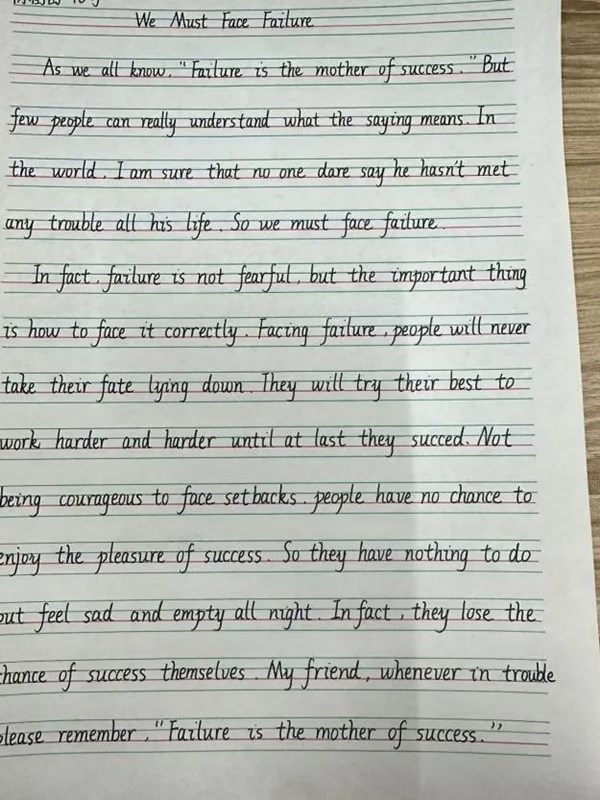 We Must Face Failure
As we all know. "Failure is the mother of success." But
few people can really understand what the saying means. In
the world. I am sure that no one dare say he hasn't met
any trouble all his life. So we must face failure.
In fact, failure is not fearful, but the important thing
is how to face it correctly. Facing failure, people will never
take their fate lying down. They will try their best to
work harder and harder until at last they succed. Not
being courageous to face setbacks. people have no chance to
enjoy the pleasure of success. So they have nothing to do
but feel sad and empty all night. In fact, they lose the
chance of success themselves. My friend, whenever in trouble
please remember, "Failure is the mother of success."